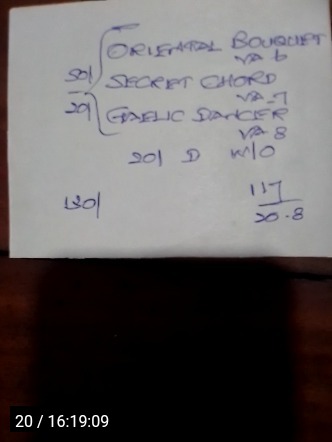 ORIENTAL BOUQUET
VA 6
50/ SECRET CHORD
VA 7
20/ GAELIC DANCER
VA 8
20/ D W/O
130/ 117
20.8
20 / 16:19:09